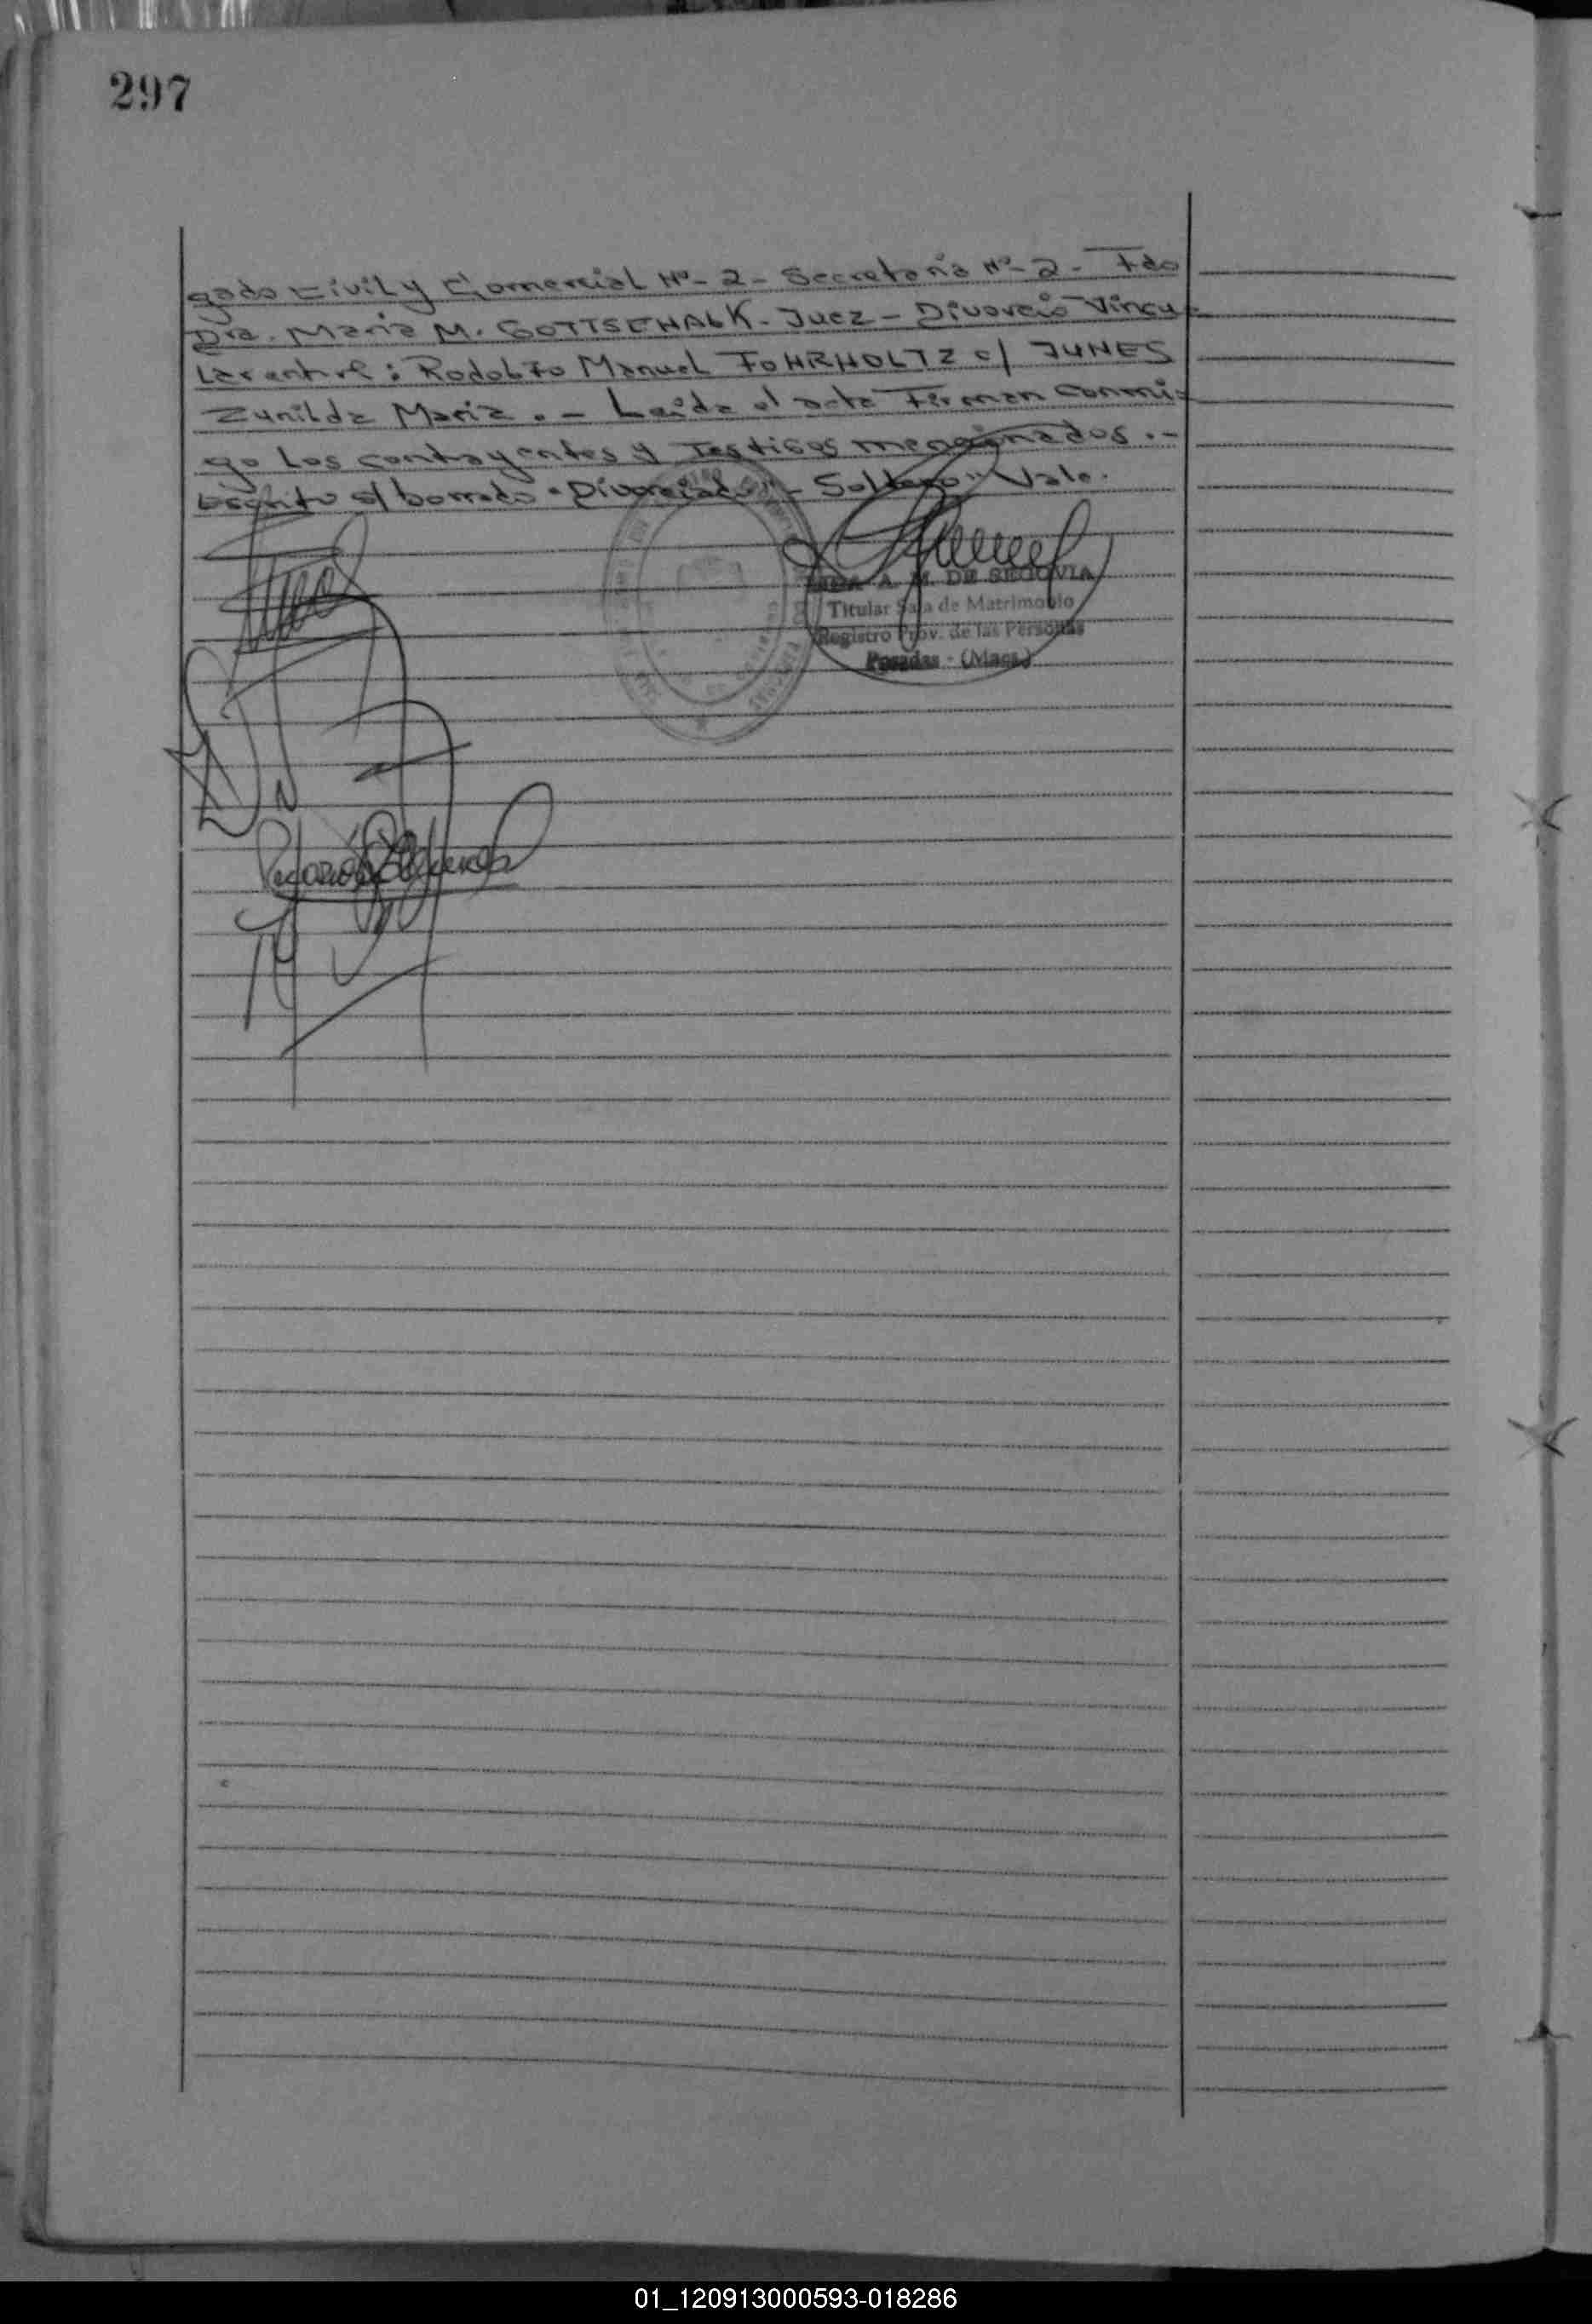 297
gado Civil y Comercial Nº-2- Secretaria Nº-2- Fdo
Dra. Maria M. GOTTSCHALK- Juez- Divorcio Vincu-
lar entre: Rodolfo Manuel FOHRHOLTZ c/ JUNES
Zunilda Maria.- Leida el acta Firman conmi-
go los contrayentes y Testigos mencionados.-
Escrito s/ borrado "Divorciado"- Soltero" Vale.
A. M. DE SEGOVIA
Titular Sala de Matrimonio
Registro Prov. de las Personas
Posadas - (Mnes.)
01_120913000593-018286